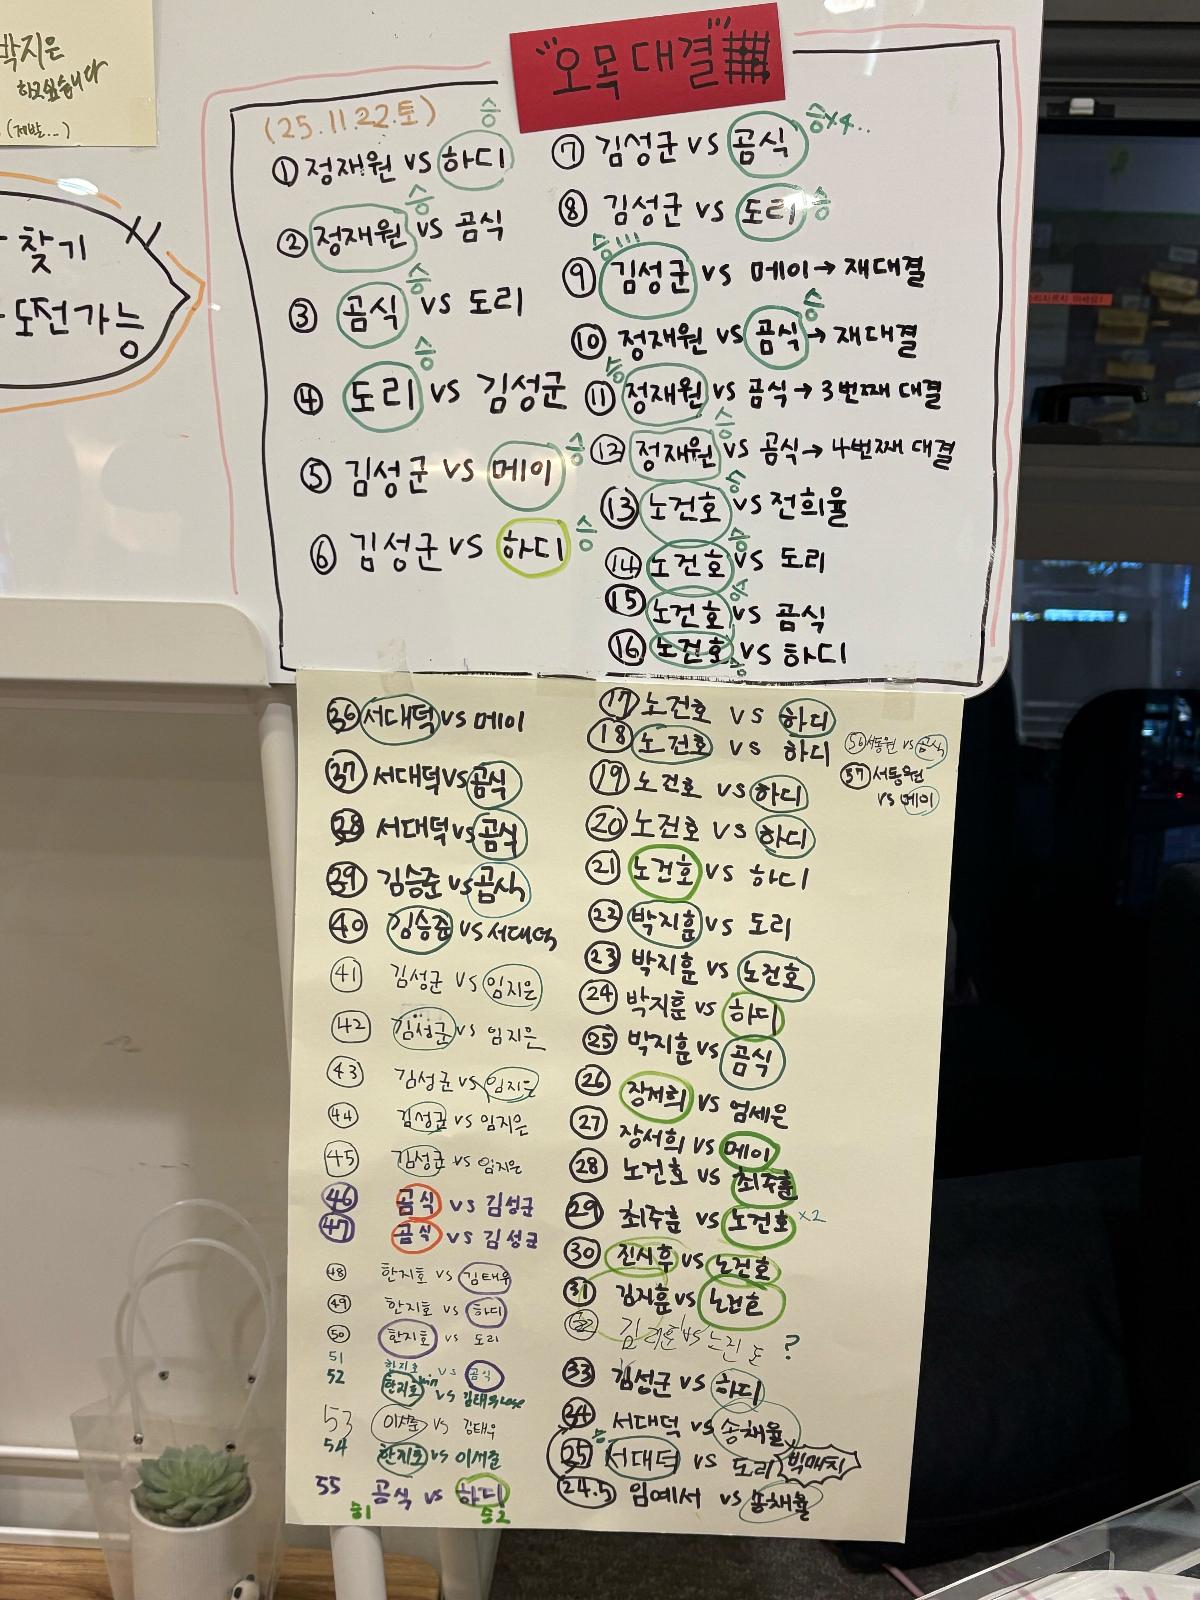 박지은
하고싶습니다
(제발...)
찾기
도전가능
"오목대결"
(25.11.22.토)
① 정재원 vs 하디 승
② 정재원 승 vs 곰식
③ 곰식 승 vs 도리
④ 도리 승 vs 김성군
⑤ 김성군 vs 메이 승
⑥ 김성군 vs 하디 승
⑦ 김성군 vs 곰식 승x4..
⑧ 김성군 vs 도리 승
⑨ 김성군 승!!! vs 메이→재대결
⑩ 정재원 vs 곰식 승→재대결
⑪ 정재원 승 vs 곰식→3번째 대결
⑫ 정재원 승 vs 곰식→4번째 대결
⑬ 노건호 승 vs 전희율
⑭ 노건호 승 vs 도리
⑮ 노건호 승 vs 곰식
⑯ 노건호 승 vs 하디
㊱ 서대덕 vs 메이
㊲ 서대덕 vs 곰식
38 서대덕 vs 곰식
㊴ 김승준 vs 곰식
㊵ 김승준 vs 서대덕
41 김성군 vs 임지은
42 김성군 vs 임지은
43 김성군 vs 임지은
44 김성군 vs 임지은
45 김성군 vs 임지은
46 곰식 vs 김성군
47 곰식 vs 김성군
48 한지호 vs 김태우
49 한지호 vs 하디
50 한지호 vs 도리
51 한지호 vs 곰식
52 한지호 win vs 김태우 lose
53 이서준 vs 김태우
54 한지호 vs 이서준
55 곰식 vs 하디
승1 승2
⑰ 노건호 vs 하디
⑱ 노건호 vs 하디
⑲ 노건호 vs 하디
⑳ 노건호 vs 하디
㉑ 노건호 vs 하디
㉒ 박지훈 vs 도리
㉓ 박지훈 vs 노건호
㉔ 박지훈 vs 하디
㉕ 박지훈 vs 곰식
㉖ 장서희 vs 엄세은
㉗ 장서희 vs 메이
㉘ 노건호 vs 최주훈
㉙ 최주훈 vs 노건호 x2
㉚ 진시후 vs 노건호
㉛ 김지훈 vs 노건호
vs ?
㉝ 김성군 vs 하디
34 서대덕 vs 송채율
승 서대덕 vs 도리 빅매치
24.5 임예서 vs 송채율
56 서동원 vs 곰식
37 서동원
vs 메이